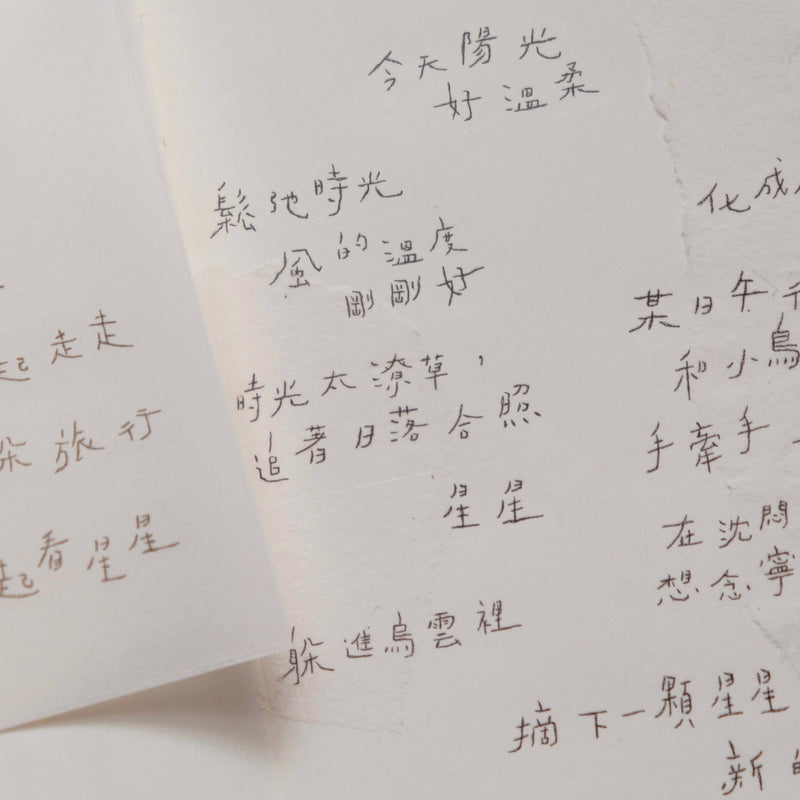 今天陽光
好溫柔
鬆弛時光
風的溫度
剛剛好
時光太潦草，
追著日落合照
星星
躲進烏雲裡
化成
某日午
和小鳥
手牽手
在沈悶
想念寧
摘下一顆星星
新的
起走走
朵旅行
起看星星